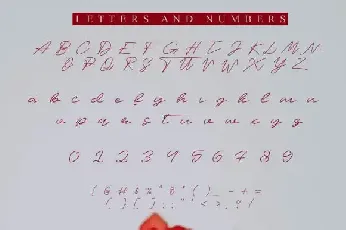 LETTERS AND NUMBERS
A B C D E F G H I J K L M N
O P Q R S T U V W X Y Z
a b c d e f g h i j k l m n
o p q r s t u v w x y z
0 1 2 3 4 5 6 7 8 9